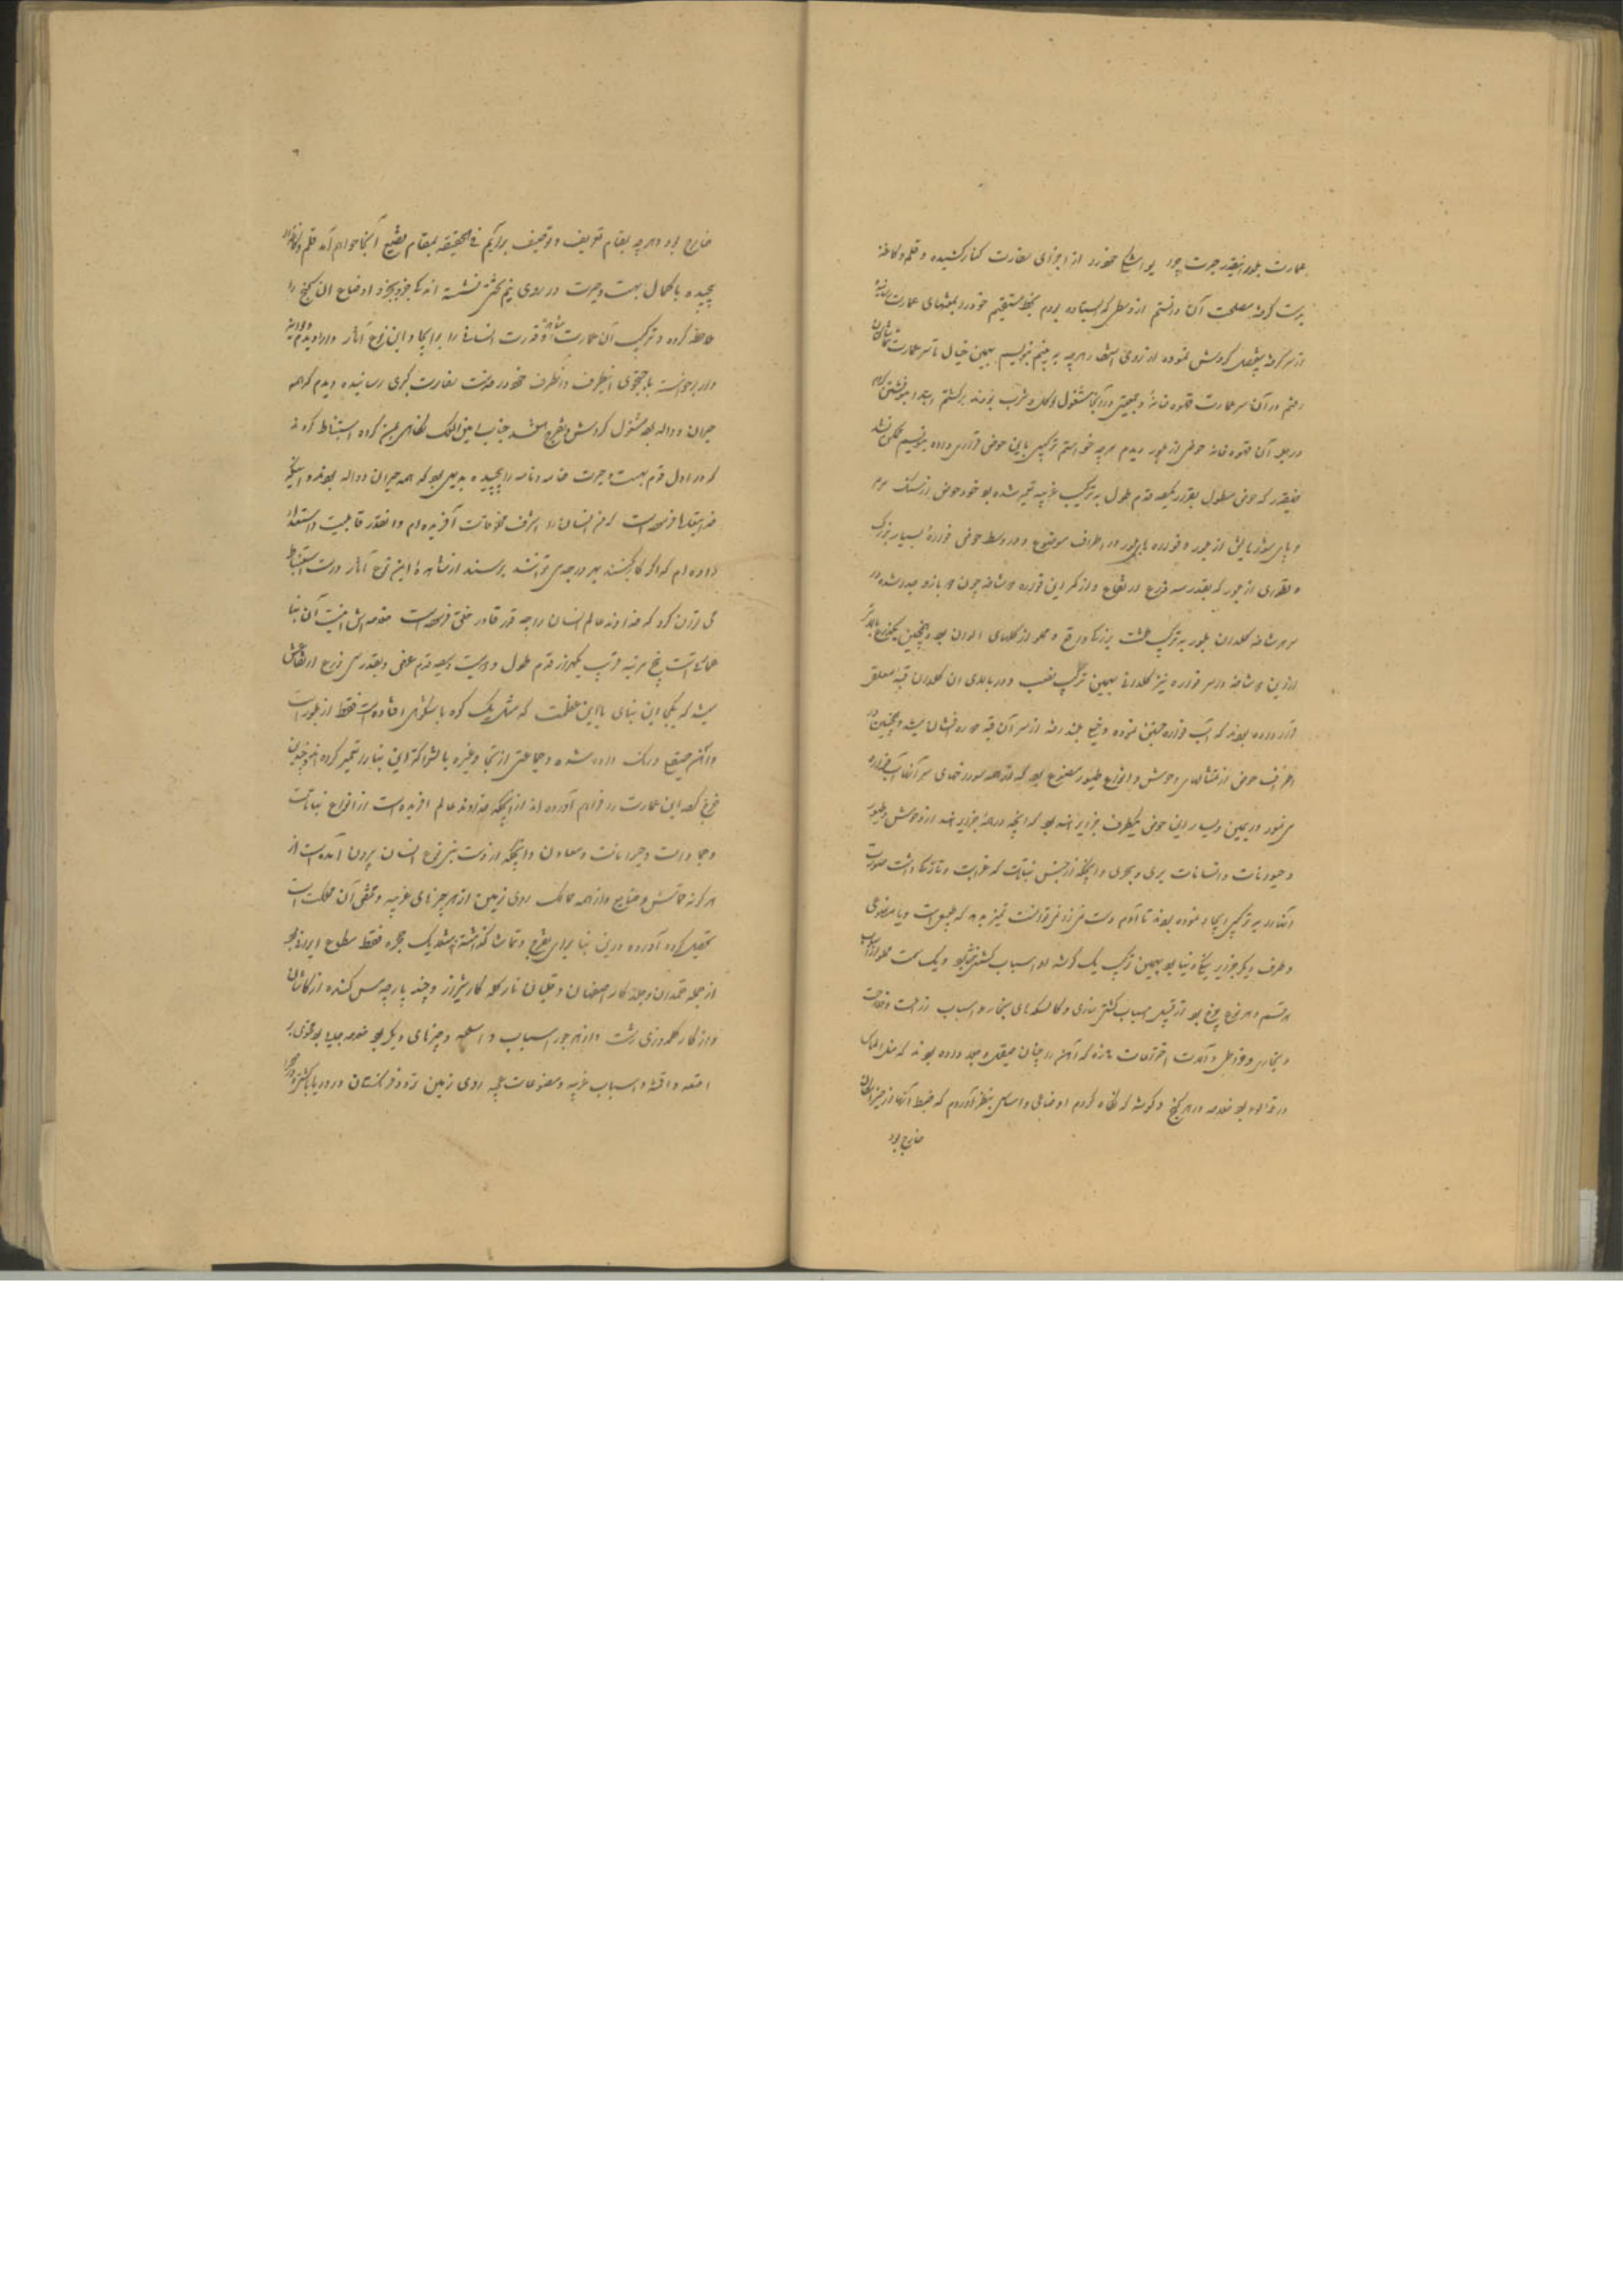 عمارت بلور اینقدر حیرت
خود را از اجزای سفارت کنار کشیده و قلم و کاغذ
بدست گرفته مصلحت آن دانستم از وسطی که ایستاده بودم بخط مستقیم خود را بمنتهای عمارت رسانیده
از سر گرفته بتفصیل گردش نموده از روی هر چه به بینم بنویسم بهمین خیال تا سر عمارت
رفتم در آن سر عمارت قهوه خانه و جمعیتی در آنجا مشغول اکل و شرب بودند برگشتم
در جلو آن قهوه خانه حوضی از بلور دیدم هر چه خواستم ترکیبی باین حوض قرار داده بنویسم ممکن نشد
همینقدر که حوض مطول بقدر یکصد قدم طول به ترکیب غریبه تعمیر شده بود خود حوض از سنگ مرمر
از بلور و فواره های بلور در اطراف موضوع و در وسط حوض فواره بسیار بزرگ
و قطوری از بلور که بقدر سه ذرع ارتفاع و از کمر این فواره شاخه چون بازو جدا شده در
سر هر شاخه گلدان بلور به ترکیب طشت بزرگ و مملو از گلهای الوان بود و همچنین یکذرع بالاتر
ازین شاخه در سر فواره نیز گلدانی بهمین ترکیب نصب و در بالای آن گلدان قبه معلق
قرار داده بودند که آب فواره جستن نموده و خیلی بلند رفته از سر آن قبه میشد و همچنین در
اطراف حوض از تمثالهای وحوش و انواع طیور مصنوع بود که از همه سوراخهای سر آنها آب فواره
می نمود در یمین و یسار این حوض یکطرف جزیره افریقه بود که آنچه در همه جزیره از وحوش و طیور
و حیوانات و انسانات بری و بحری و آنچه از جنس نباتات که غرابت و تازگی داشت صورت
آنها را به ترکیبی ایجاد نموده بودند تا آدم دست نمی زد نمی توانست تمیز بدهد که طبیعی است و یا مصنوعی
و طرف دیگر جزیره ینگی دنیا بود بهمین ترکیب یک گوشه اسباب کشتی و یک سمت مملو از اسباب
هر قسم و هر نوع چرخ بود از قبیل اسباب کشتی سازی و کالسکه های بخار و اسباب زراعت و فلاحت
و نجاری و آلات اختراعات تازه که آهن را چنان صیقل و جلا داده بودند که مثل الماس
بود خلاصه در هر کنج و گوشه که نگاه کردم اوضاعی و اساسی بنظر آوردم که ضبط آنها از حیز امکان
خارج بود
خارج بود و هر چه بمقام تعریف و توصیف برآیم فی الحقیقه بمقام تضییع آنجا خواهم آمد قلم و کاغذ را
پیچیده با کمال بهت و حیرت در روی نیم تختی نشسته اندک جزو بجزو اوضاع آن کنج را
ملاحظه کرده و ترکیب آن عمارت و قدرت انسانی را بر ایجاد این نوع آثار
و از آنطرف خود را خدمت سفارت کبری رسانیده دیدم که همه
حیران و واله بوده مشغول گردش و تفرج میباشند جناب امین الملک
که در اول قدم بهت و حیرت خاص و عام را پیچیده بدیهی بود که همه حیران و واله بودند
فرموده است که من انسان را اشرف مخلوقات آفریده ام و آنقدر قابلیت و استعداد
داده ام که اگر کار کنند بهر درجه می توانند برسند از مشاهده این نوع آثار درست استنباط
می توان کرد که خداوند عالم انسان را چه قدر قادر خلق فرموده است مقدمه اش اینست آن بنا
عمارتیست پنج مرتبه قریب یکهزار قدم طول و دویست و یکصد قدم عرض و بقدر سی ذرع ارتفاعش
میشد که یکجا این بنای باین عظمت که مثل یک کوه با شکوهی افتاده است فقط از بلور است
و آهن صیقلی و رنگ داده شده و جماعتی از تجار و غیره بالشراکه این بنا را تعمیر کرده اند و چندین
خرج کرده این عمارت را فراهم آورده اند از آنچه خداوند عالم آفریده است از انواع نباتات
و جمادات و حیوانات و معادن و آنچه از دست بنی نوع انسان بیرون آمده است از
هر گونه قماش و صنایع و از همه ممالک روی زمین از هر چیزهای غریبه و تحفه آن مملکت است
تحصیل کرده آورده در این بنا برای تفرج و تماشا گذاشته اند یک حجره فقط سطوح ایران بود
از جمله قلمدان و جلد کار اصفهان و قلیان نارگیله کار شیراز و چند پارچه مس کنده از کاشان
و از کار گلدوزی رشت و از هر جور اسباب و اسلحه و چیزهای دیگر بود
امتعه و اقمشه و اسباب غریبه و مصنوعات عجیبه روی زمین